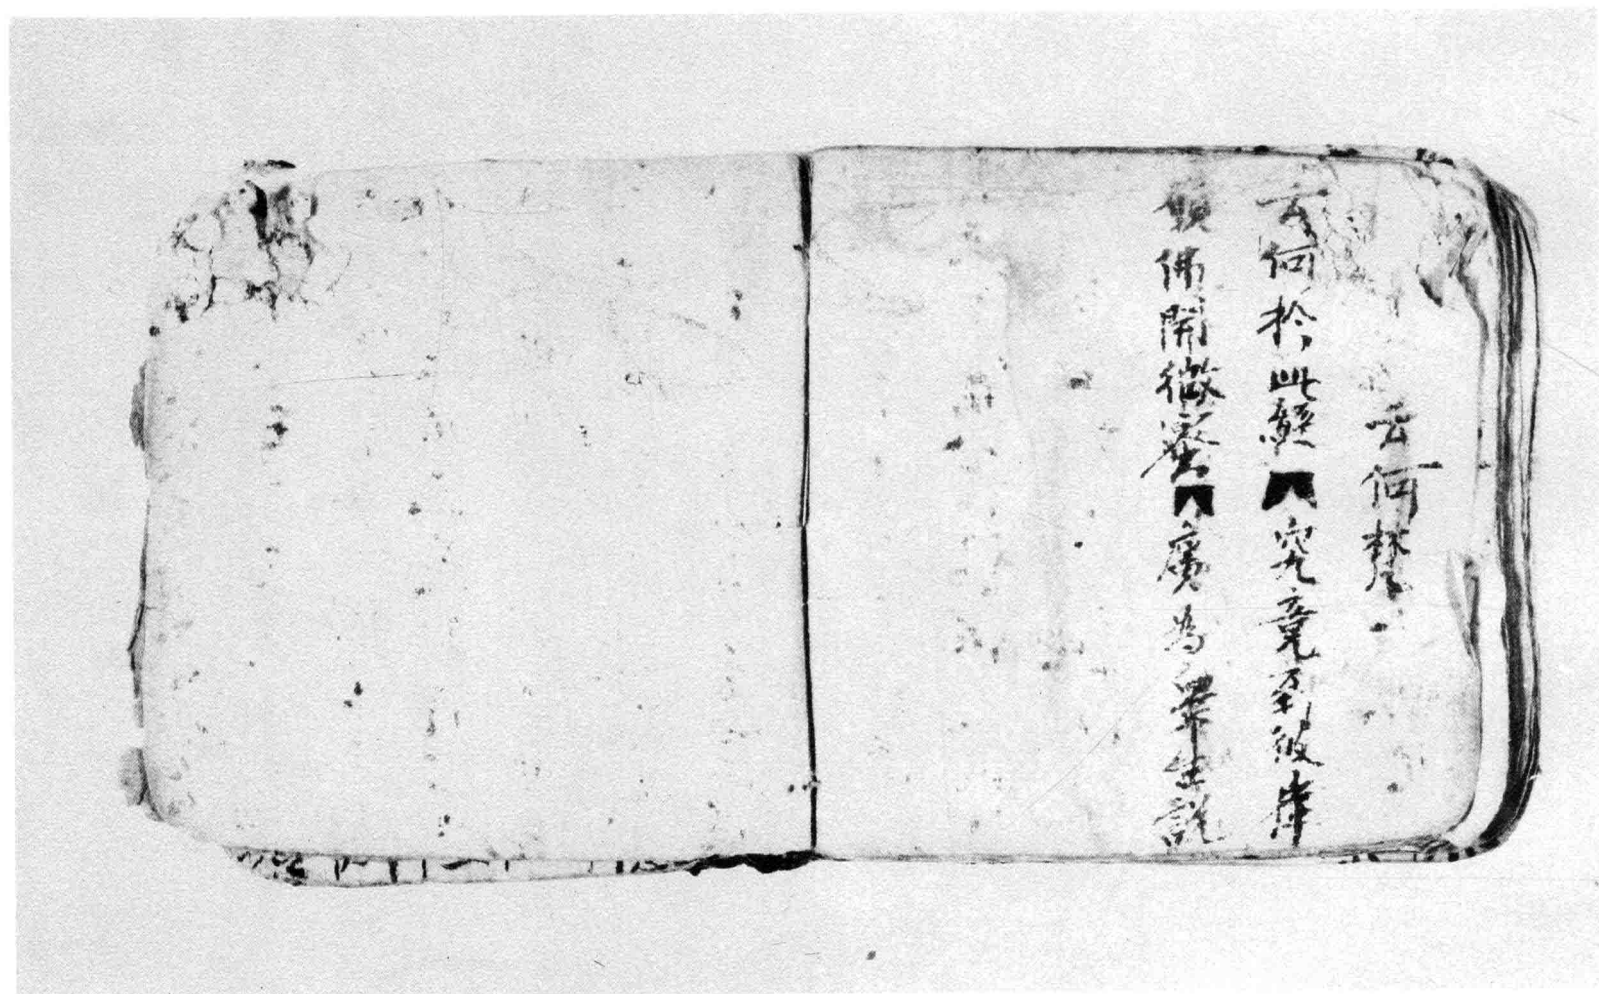 云何梵
云何於此經 究竟到彼岸
願佛開微密 廣為眾生說